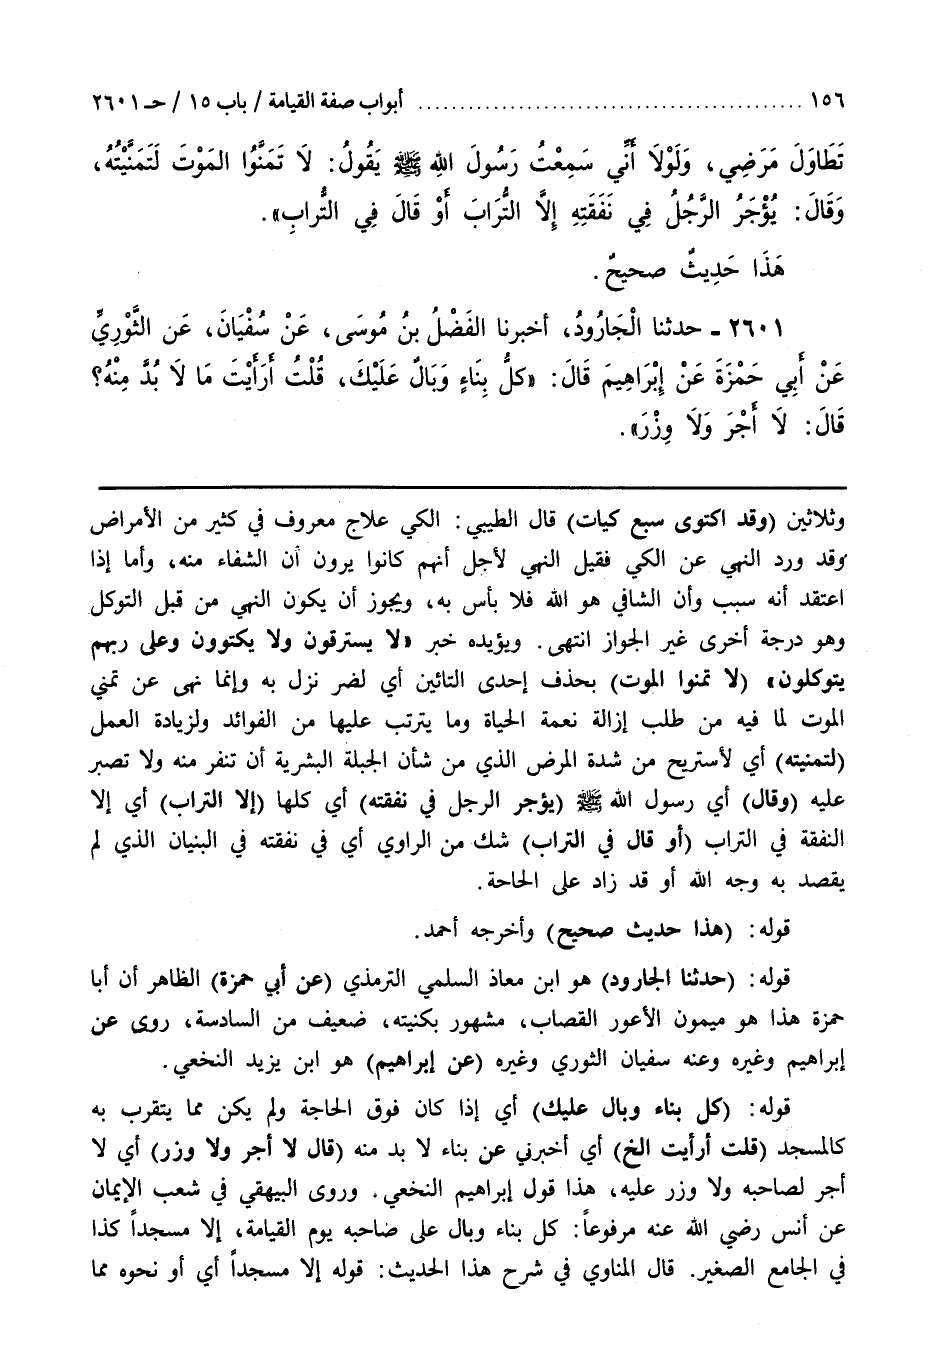 ١٥٦ ............................................. أبواب صفة القيامة / باب ١٥ / حـ ٢٦٠١
تَطَاوَلَ مَرَضِي، وَلَوْلَا أَنِّي سَمِعْتُ رَسُولَ اللهِ ﷺ يَقُولُ: لَا تَمَنَّوُا المَوْتَ لَتَمَنَّيْتُهُ،
وَقَالَ: يُؤْجَرُ الرَّجُلُ فِي نَفَقَتِهِ إِلاَّ التُّرَابَ أَوْ قَالَ فِي التُّرابِ».
هَذَا حَدِيثٌ صحيحٌ.
٢٦٠١ ـ حدثنا الْجَارُودُ، أخبرنا الفَضْلُ بنُ مُوسَى، عَنْ سُفْيَانَ، عَن الثَّوْرِيِّ
عَنْ أَبِي حَمْزَةَ عَنْ إِبْرَاهِيمَ قَالَ: «كلُّ بِنَاءٍ وَبَالٌ عَلَيْكَ، قُلْتُ أَرَأَيْتَ مَا لَا بُدَّ مِنْهُ؟
قَالَ: لَا أَجْرَ وَلَا وِزْرَ».
وثلاثين (وقد اكتوى سبع كيات) قال الطيبي: الكي علاج معروف في كثير من الأمراض
وقد ورد النهي عن الكي فقيل النهي لأجل أنهم كانوا يرون أن الشفاء منه، وأما إذا
اعتقد أنه سبب وأن الشافي هو الله فلا بأس به، ويجوز أن يكون النهي من قبل التوكل
وهو درجة أخرى غير الجواز انتهى. ويؤيده خبر «لا يسترقون ولا يكتوون وعلى ربهم
يتوكلون» (لا تمنوا الموت) بحذف إحدى التائين أي لضر نزل به وإنما نهى عن تمني
الموت لما فيه من طلب إزالة نعمة الحياة وما يترتب عليها من الفوائد ولزيادة العمل
(لتمنيته) أي لأستريح من شدة المرض الذي من شأن الجبلة البشرية أن تنفر منه ولا تصبر
عليه (وقال) أي رسول الله ﷺ (يؤجر الرجل في نفقته) أي كلها (إلا التراب) أي إلا
النفقة في التراب (أو قال في التراب) شك من الراوي أي في نفقته في البنيان الذي لم
يقصد به وجه الله أو قد زاد على الحاحة.
قوله: (هذا حديث صحيح) وأخرجه أحمد.
قوله: (حدثنا الجارود) هو ابن معاذ السلمي الترمذي (عن أبي حمزة) الظاهر أن أبا
حمزة هذا هو ميمون الأعور القصاب، مشهور بكنيته، ضعيف من السادسة، روى عن
إبراهيم وغيره وعنه سفيان الثوري وغيره (عن إبراهيم) هو ابن يزيد النخعي.
قوله: (كل بناء وبال عليك) أي إذا كان فوق الحاجة ولم يكن مما يتقرب به
كالمسجد (قلت أرأيت الخ) أي أخبرني عن بناء لا بد منه (قال لا أجر ولا وزر) أي لا
أجر لصاحبه ولا وزر عليه، هذا قول إبراهيم النخعي. وروى البيهقي في شعب الإيمان
عن أنس رضي الله عنه مرفوعاً: كل بناء وبال على صاحبه يوم القيامة، إلا مسجداً كذا
في الجامع الصغير. قال المناوي في شرح هذا الحديث: قوله إلا مسجداً أي أو نحوه مما